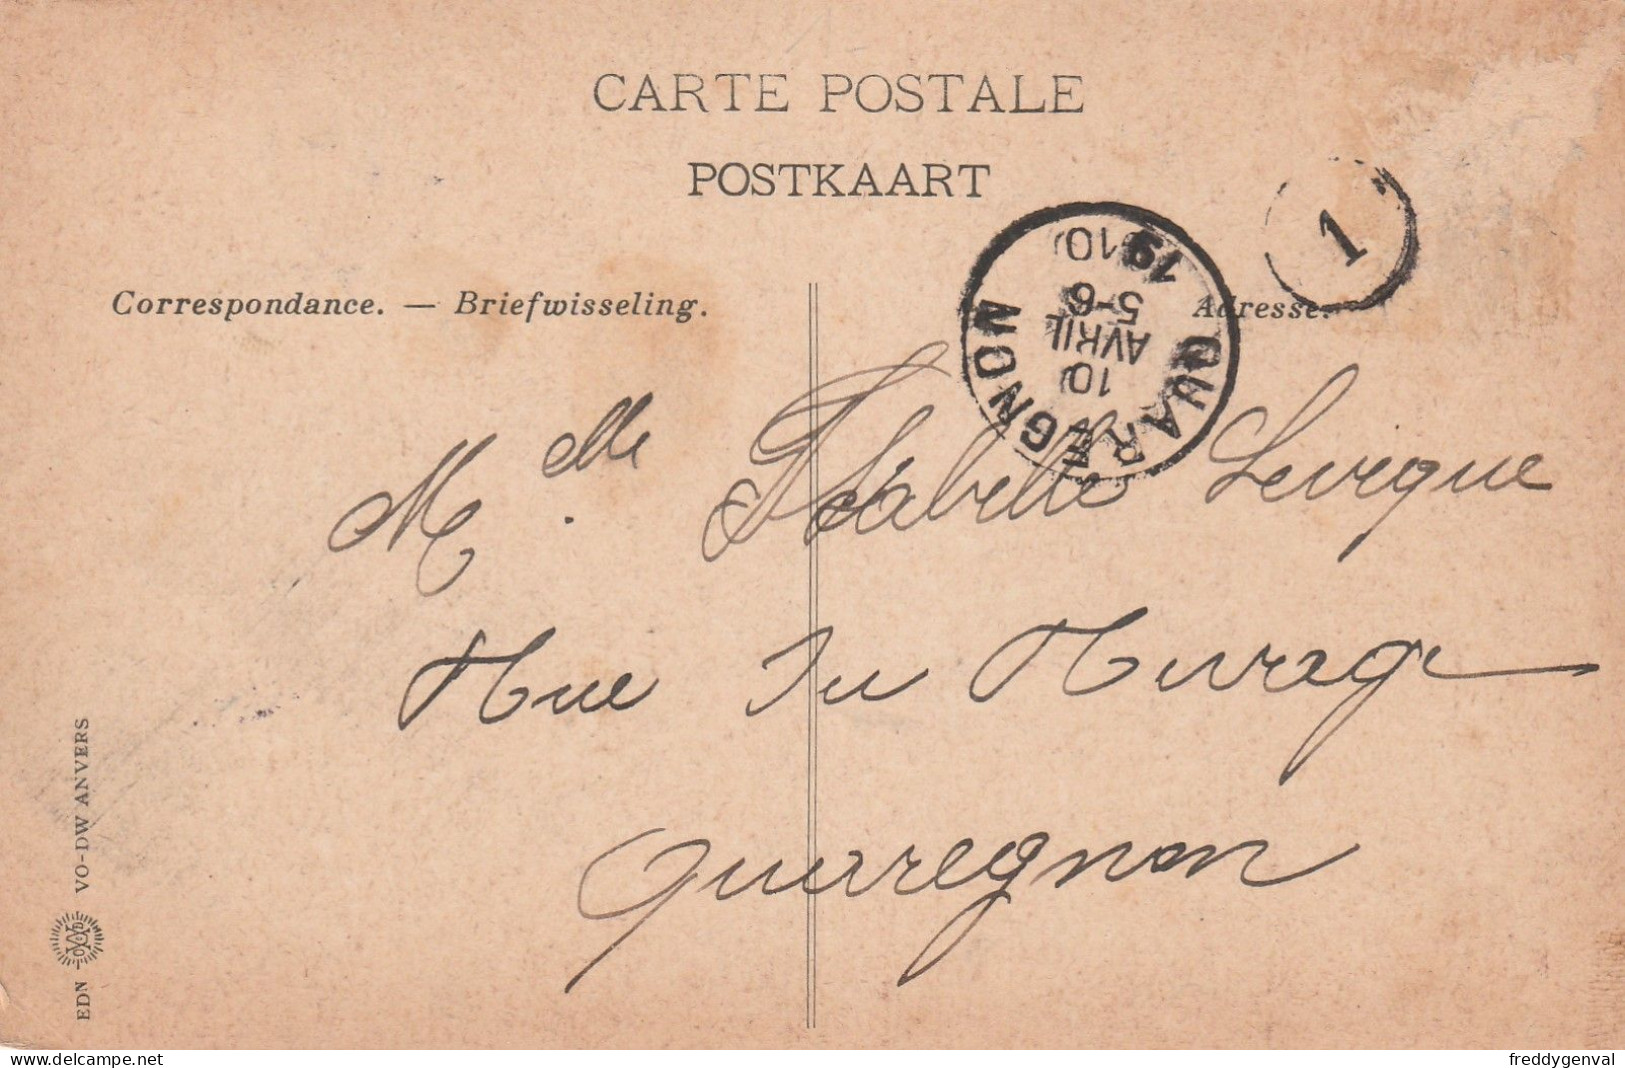 CARTE POSTALE
POSTKAART
Correspondance. — Briefwisseling.
Adresse.
QUAREGNON
10
AVRIL
5-6
1910
1
Mlle. Isabelle Leveque
Rue Du Rivage
Quaregnon
EDN VO-DW ANVERS
delcampe.net
freddygenval